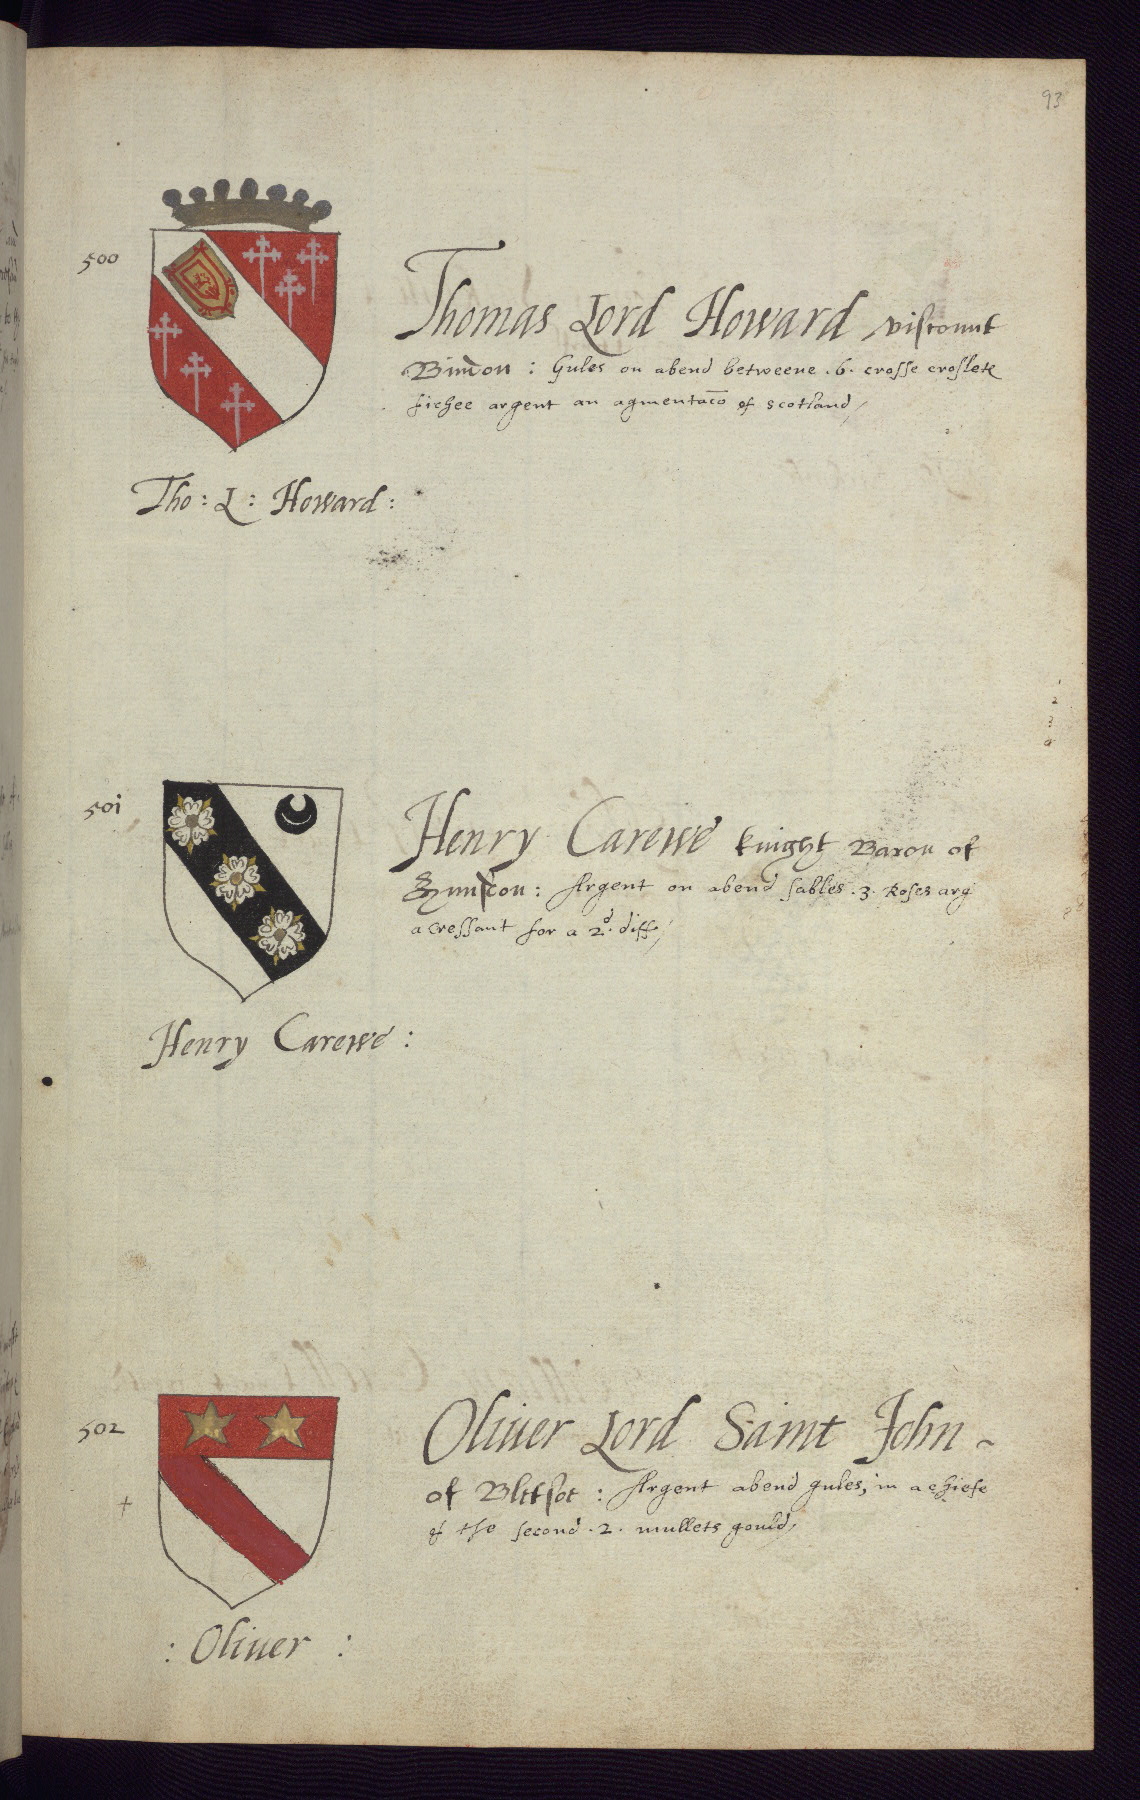 93
500
Thomas Lord Howard viscount
Bindon : Gules on abend betweene .6. crosse croslete
fichee argent an agmentacō of scotland
Tho : L : Howard :
501
Henry Carewe knight Baron of
Hunsdon : Argent on abend sables .3. Roses arg
a cressant for a 2d. diff
Henry Carewe :
502
Oliuer Lord Saint John
of Bletsot : Argent abend gules, in a chiefe
of the second .2. mullets gould
: Oliuer :